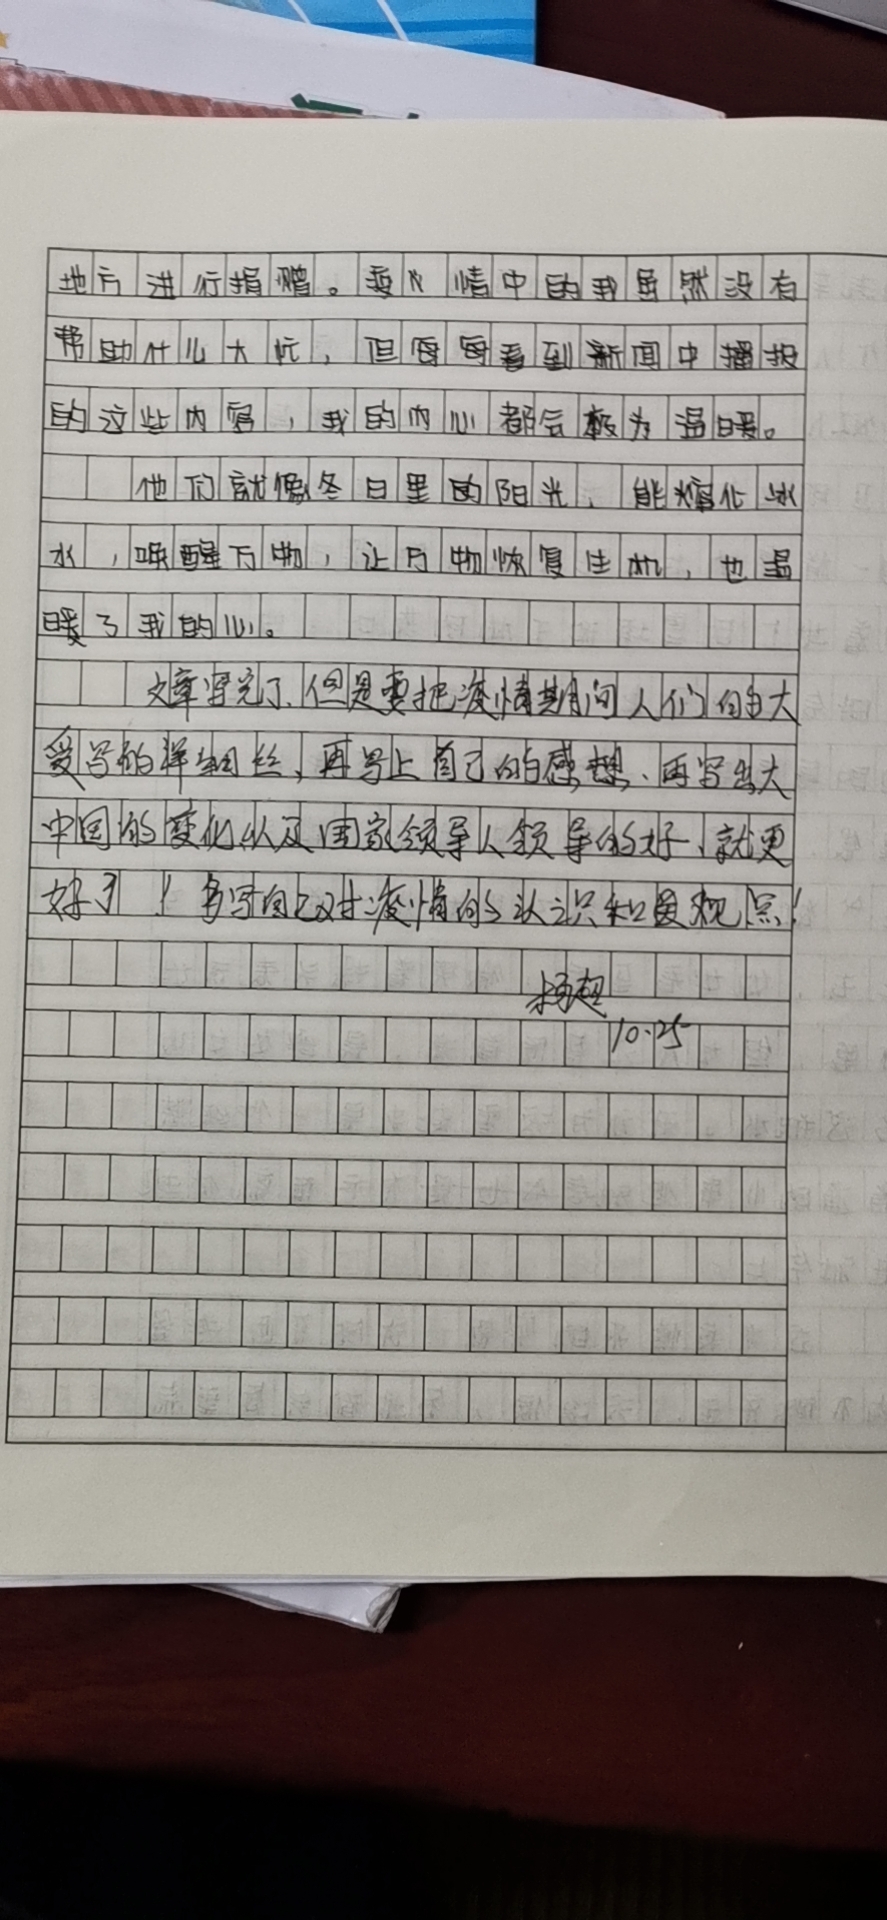 地方进行捐赠。疫情中的我虽然没有
帮助什么大忙，但每每看到新闻中播报
的这些内容，我的内心都会极为温暖。
他们就像冬日里的阳光，能熔化冰
水，唤醒万物，让万物恢复生机，也温
暖了我的心。
文章写完了、但是要把疫情期间人们的大
爱写的详细些，再写上自己的感想、再写出大
中国的变化以及国家领导人领导的好、就更
好了！多写自己对疫情的认识和爱观点！
杨超
10.25